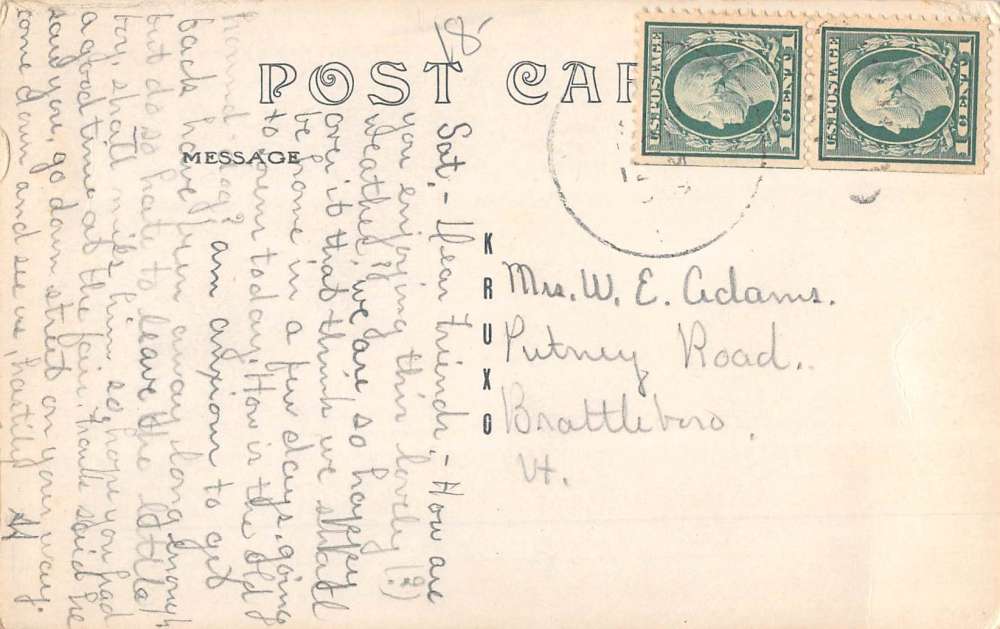 POST CAR
MESSAGE
KRUXO
U.S. POSTAGE
1 CENT 1
U.S. POSTAGE
1 CENT 1
Mrs. W. E. Adams.
Putney Road.
Brattleboro,
Vt.
Sat. - Dear Friends, - How are
you enjoying this lovely (?)
weather? We are so happy
over it that think we shall
be home in a few days, going
to today. How is the old
hound dog? am anxious to get
back have been away long enough
but do so hate to leave the little
boy, shall miss him so, hope you had
a good time at the fair, Frank said he
saw you, go down street on your way.
come down and see us,